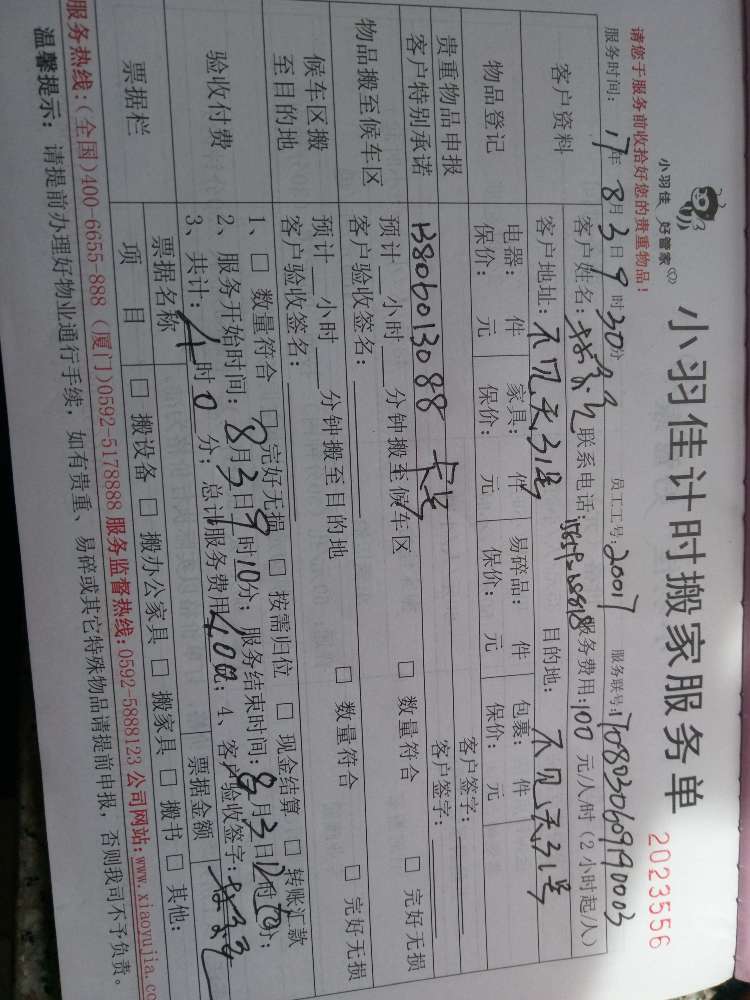 小羽佳 好管家
小羽佳计时搬家服务单
2023556
请您于服务前收拾好您的贵重物品！
服务时间：17年8月3日9时30分 员工工号：20017 服务联号：
客户资料
客户姓名： 联系电话： 服务费用：100元/人/时（2小时起/人）
客户地址：不见天31号 目的地：不见天31号
物品登记
电器： 件 家具： 件 易碎品： 件 包裹： 件
保价： 元 保价： 元 保价： 元 保价： 元
贵重物品申报 客户签字：
客户特别承诺 B806013088 卡号 客户签字：
物品搬至候车区
预计＿小时＿分钟搬至候车区 □ 数量符合 □ 完好无损
客户验收签名：
候车区搬至目的地
预计＿小时＿分钟搬至目的地 □ 数量符合 □ 完好无损
客户验收签名：
验收付费
1、□ 数量符合 □ 完好无损 □ 按需归位 □ 现金结算 □ 转账汇款
2、服务开始时间：8月3日9时10分；服务结束时间：8月3日 时 分；
3、共计： 时0分；总计服务费用 ；4、客户验收签字：
票据栏
票据名称 票据金额
项 目 □ 搬设备 □ 搬办公家具 □ 搬家具 □ 搬书 □ 其他：
服务热线：(全国)400-6655-888 (厦门)0592-5178888 服务监督热线：0592-5888123 公司网站：www.xiaoyujia.co
温馨提示：请提前办理好物业通行手续，如有贵重、易碎或其它特殊物品请提前申报，否则我司不予负责。